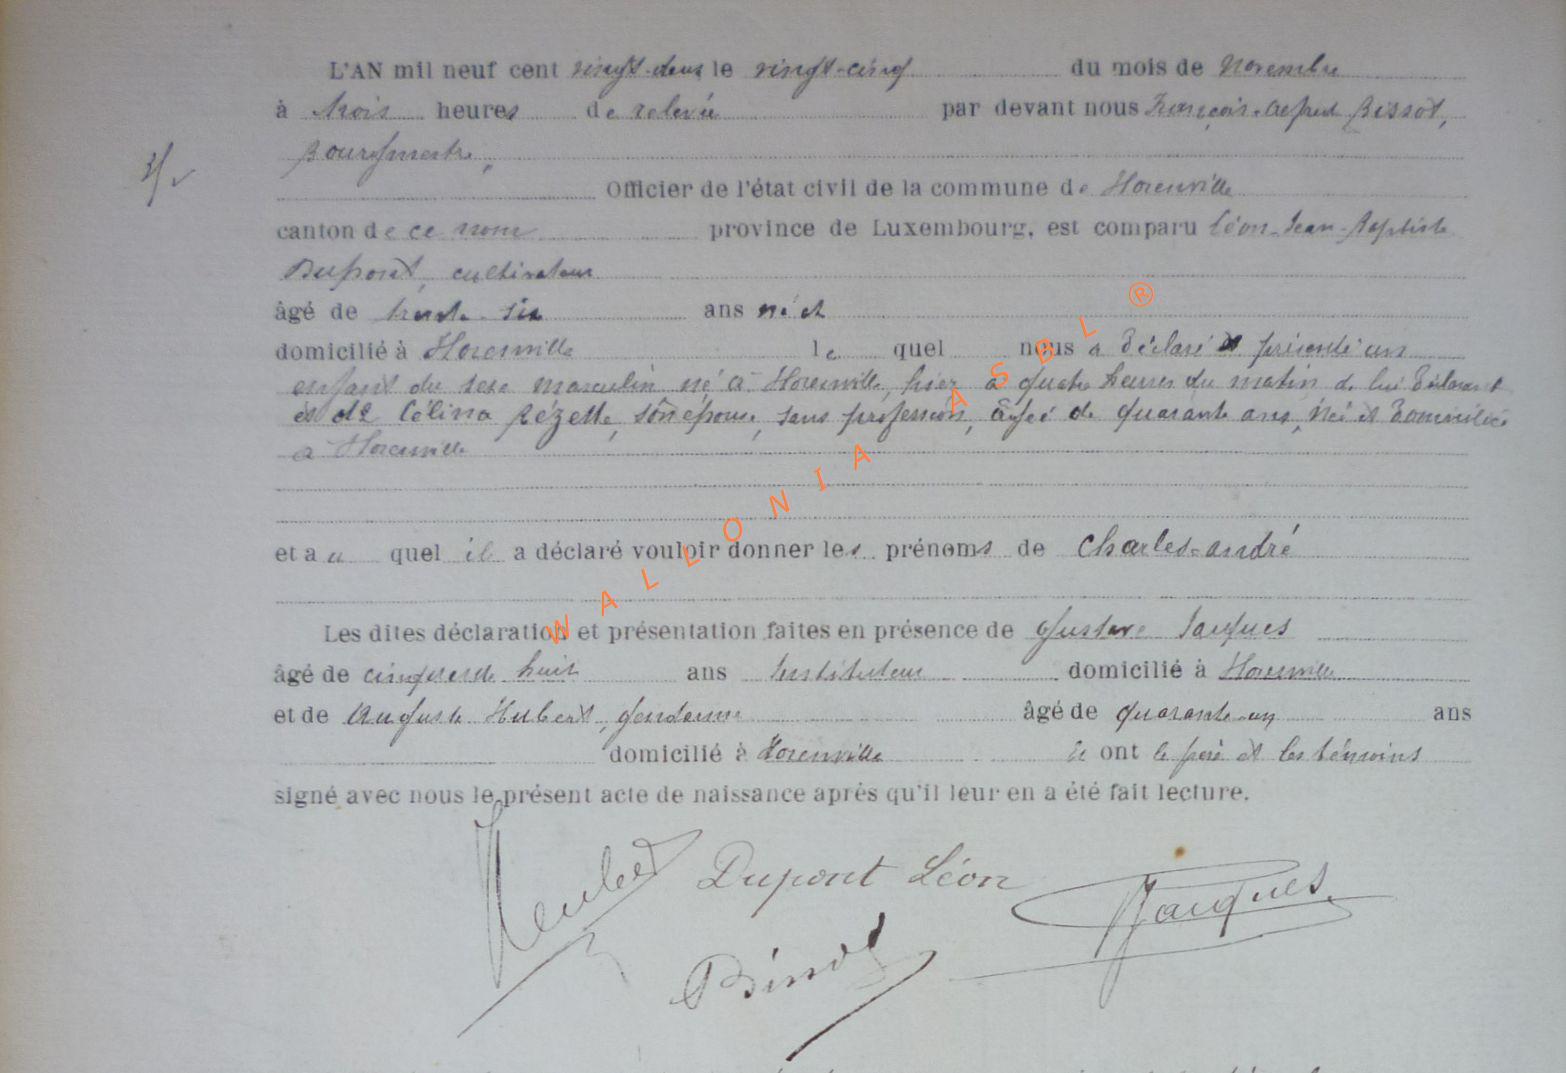 L'AN mil neuf cent vingt-deux le vingt-cinq du mois de novembre
à trois heures de relevée par devant nous François-Alfred Bissot,
Bourgmestre,
Officier de l'état civil de la commune de Horenville
canton de ce nom province de Luxembourg, est comparu Léon-Jean-Baptiste
Dupont, cultivateur
âgé de trente-six ans né et
domicilié à Horenville le quel nous a déclaré et présenté un
enfant du sexe masculin né à Horenville, hier à quatre heures du matin de lui déclarant
et de Célina Rézette, son épouse, sans profession, âgée de quarante ans, née et domiciliée
à Horenville
et a u quel il a déclaré vouloir donner les prénoms de Charles-André
Les dites déclaration et présentation faites en présence de Gustave Jacques
âgé de cinquante huit ans Instituteur domicilié à Horenville
et de Auguste Hubert, gendarme âgé de quarante-un ans
domicilié à Horenville et ont le père et les témoins
signé avec nous le présent acte de naissance après qu'il leur en a été fait lecture.
Hubert Dupont Léon Jacques
Bissot
WALLONIA ASBL ®